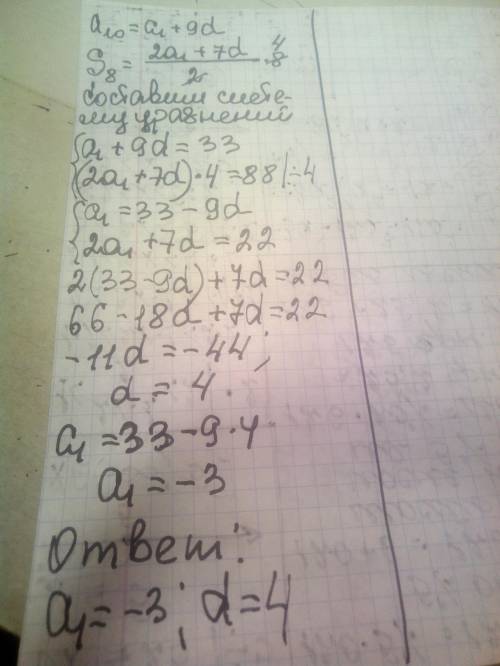 a₁₀ = a₁ + 9d
S₈ = (2a₁ + 7d)/2 · 8 4
составим систе-
му уравнений
{ a₁ + 9d = 33
(2a₁ + 7d) · 4 = 88 | ÷ 4
{ a₁ = 33 - 9d
2a₁ + 7d = 22
2(33 - 9d) + 7d = 22
66 - 18d + 7d = 22
-11d = -44;
d = 4
a₁ = 33 - 9 · 4
a₁ = -3
Ответ:
a₁ = -3; d = 4